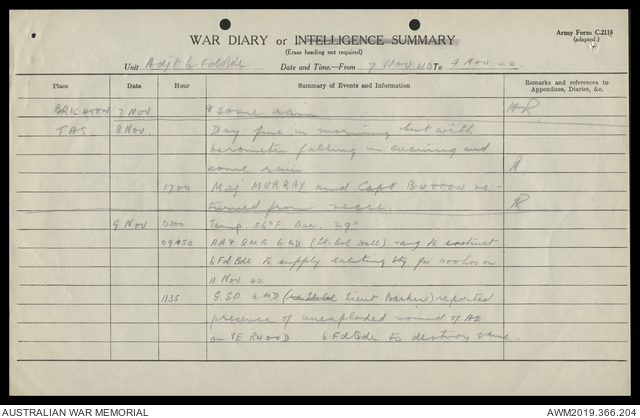 WAR DIARY or INTELLIGENCE SUMMARY
Army Form C.2118
(adapted.)
(Erase heading not required)
Unit Adjt 6 Fd Bde Date and Time.—From 7 Nov 40 To 9 Nov 40.
Place Date Hour Summary of Events and Information Remarks and references to Appendices, Diaries, &c.
BRIGHTON 7 NOV & some rain
TAS 8 Nov. Day fine in morning but with
barometer falling in evening and
some rain
1700 Maj MURRAY and Capt BUTTON re-
turned from recce.
9 Nov Temp. 56°F Bar. 29"
AA & QMG 6 MD (Lt. Col Hall) rang to instruct
6 Fd Bde to supply saluting bty for 1100 hrs on
11 Nov. 40.
1135 G.SO 6 MD (Lieut Barker) reported
presence of unexploded round of HE
6 Fd Bde to destroy same.
AUSTRALIAN WAR MEMORIAL
AWM2019.366.204